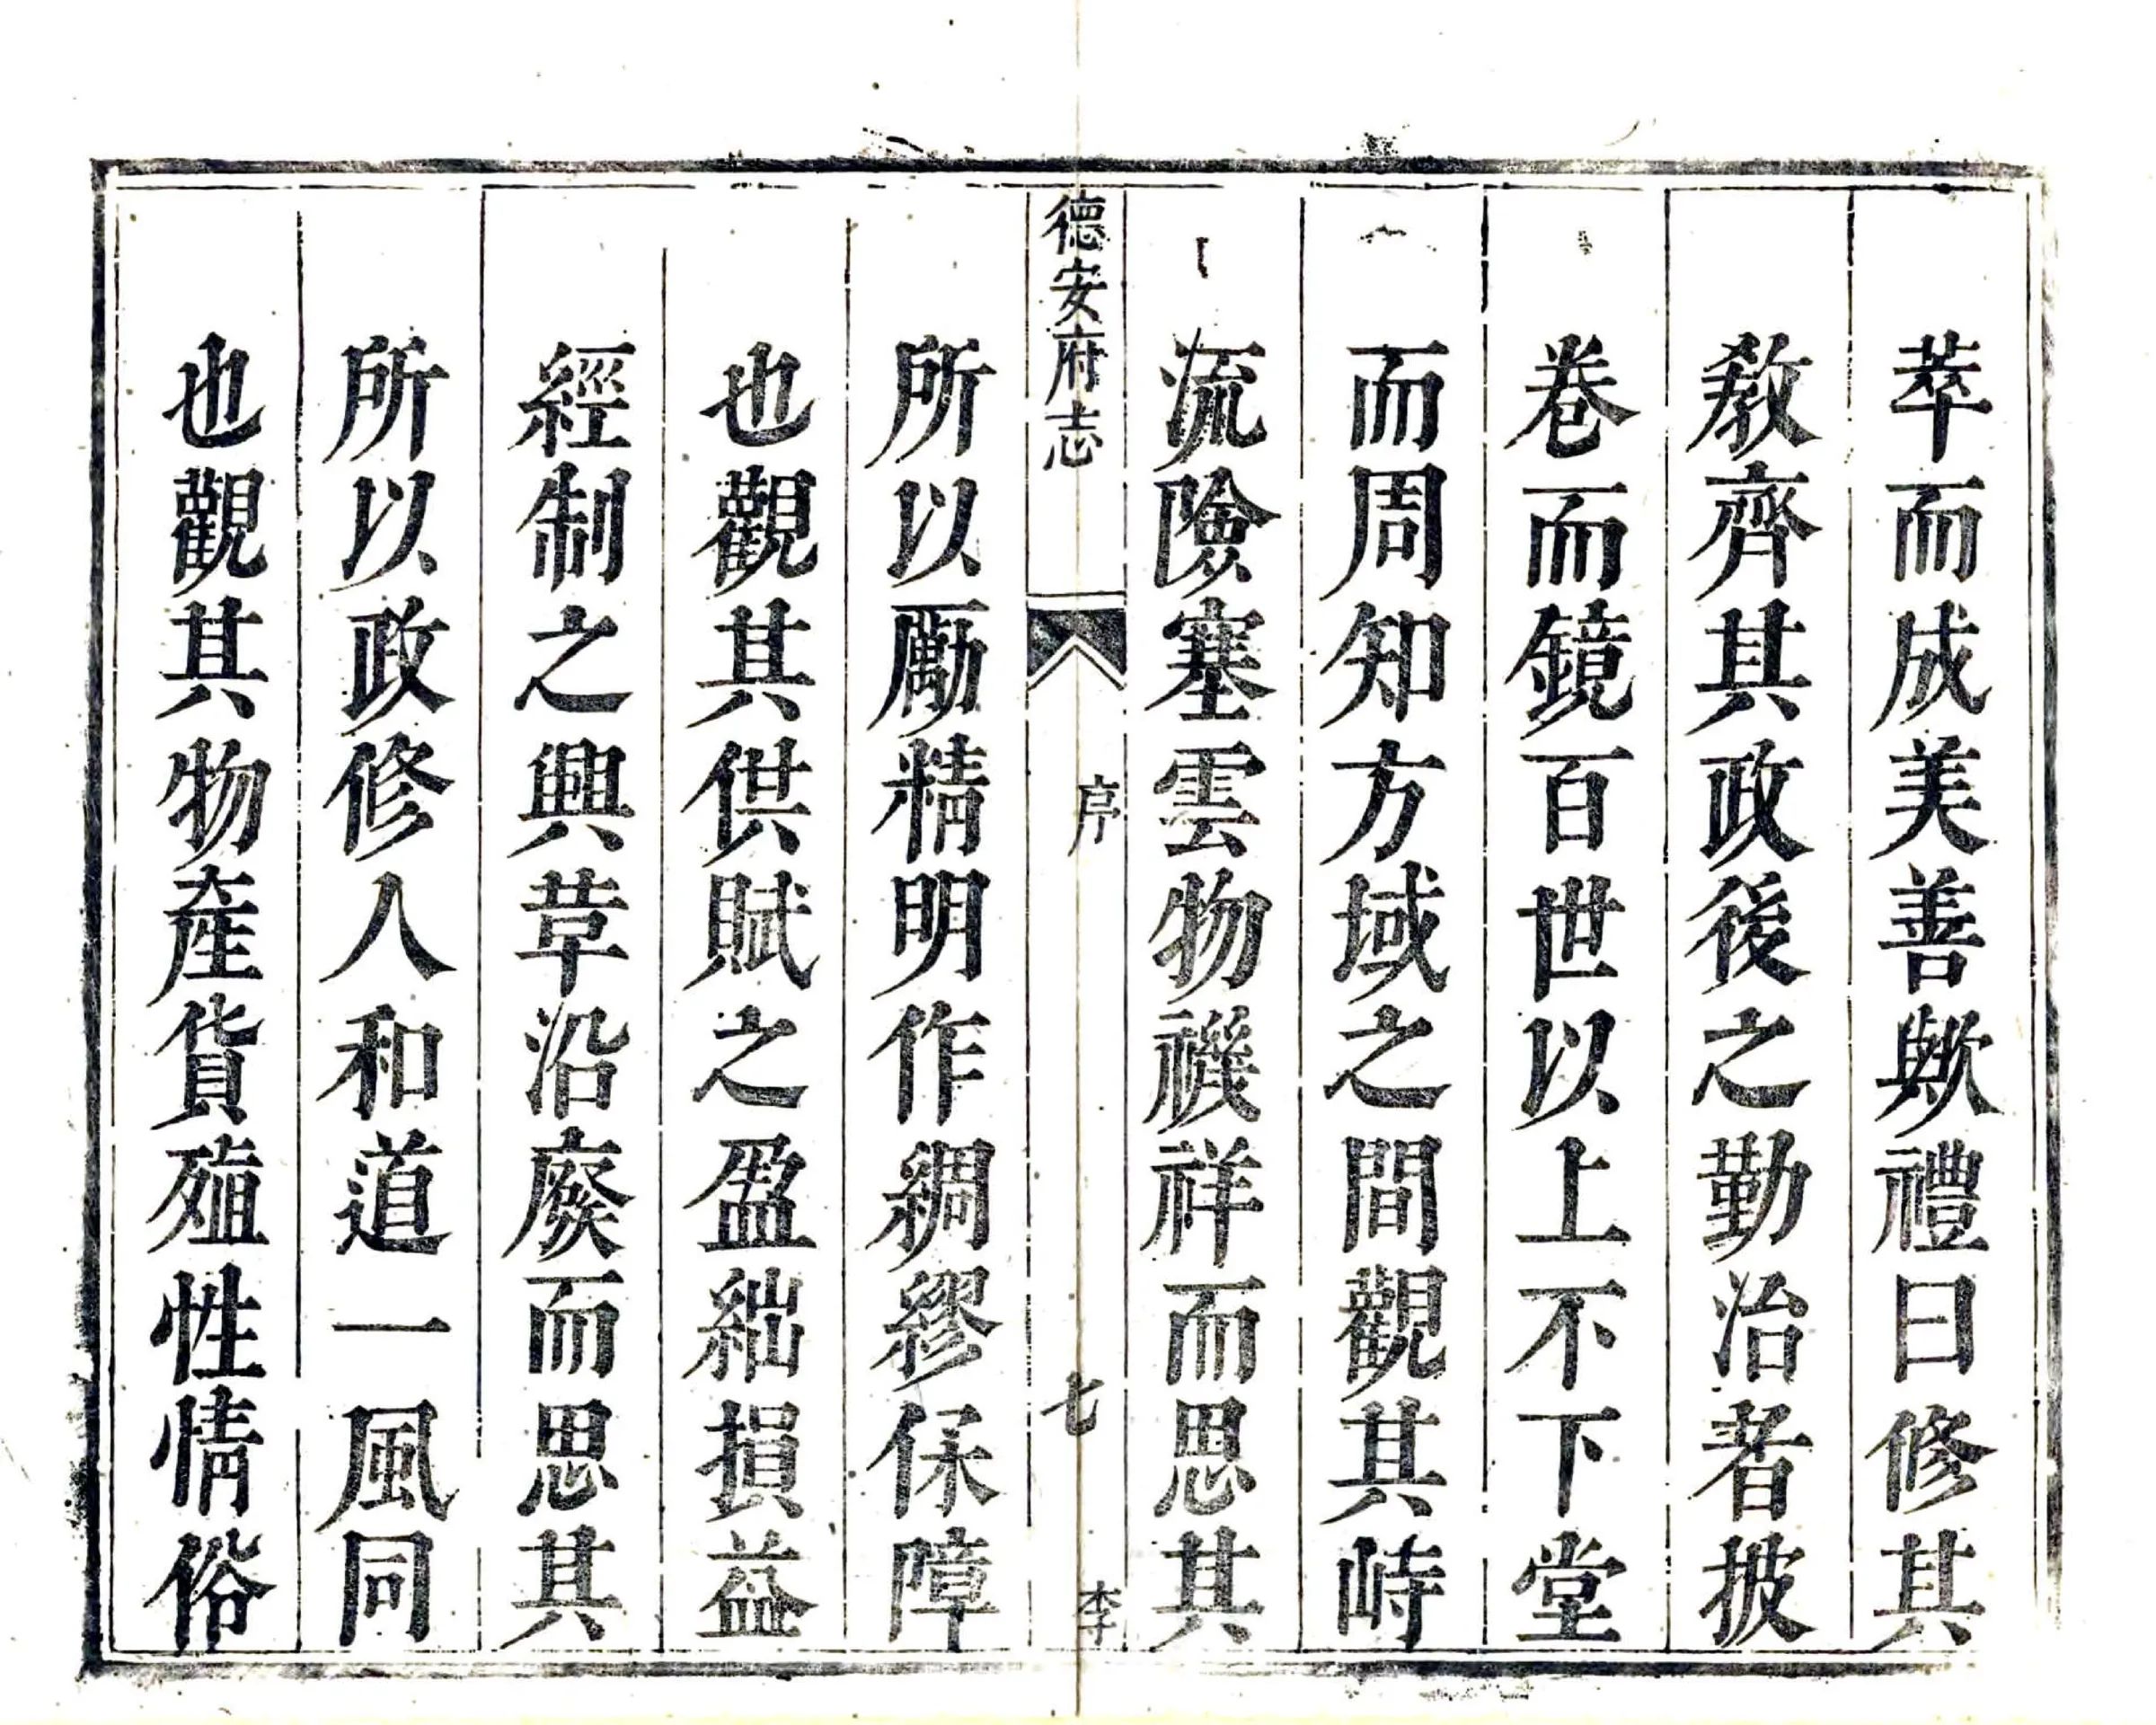 萃而成美善歟禮曰修其
教齊其政後之勤治者披
卷而鏡百世以上不下堂
而周知方域之間觀其峙
流險塞雲物禨祥而思其
德安府志
序
七
李
所以勵精明作綢繆保障
也觀其供賦之盈絀損益
經制之興革沿廢而思其
所以政修人和道一風同
也觀其物產貨殖性情俗